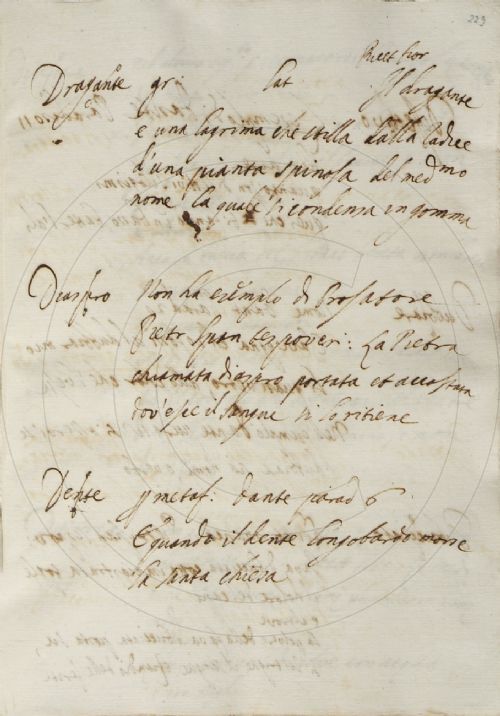 229
Ricet fior
Dragante gr: lat Il dragante
è una lagrima che stilla dalla radice
d'una pianta spinosa del med.mo
nome la quale si condensa in gomma
Diaspro Non ha esempio di Prosatore
Pietr Span tes poveri: La Pietra
chiamata diaspro portata et accostata
dov'esce il sangue si lo ritiene
Dente p metaf: Dante parad 6
E quando il dente longobardo morse
la santa chiesa